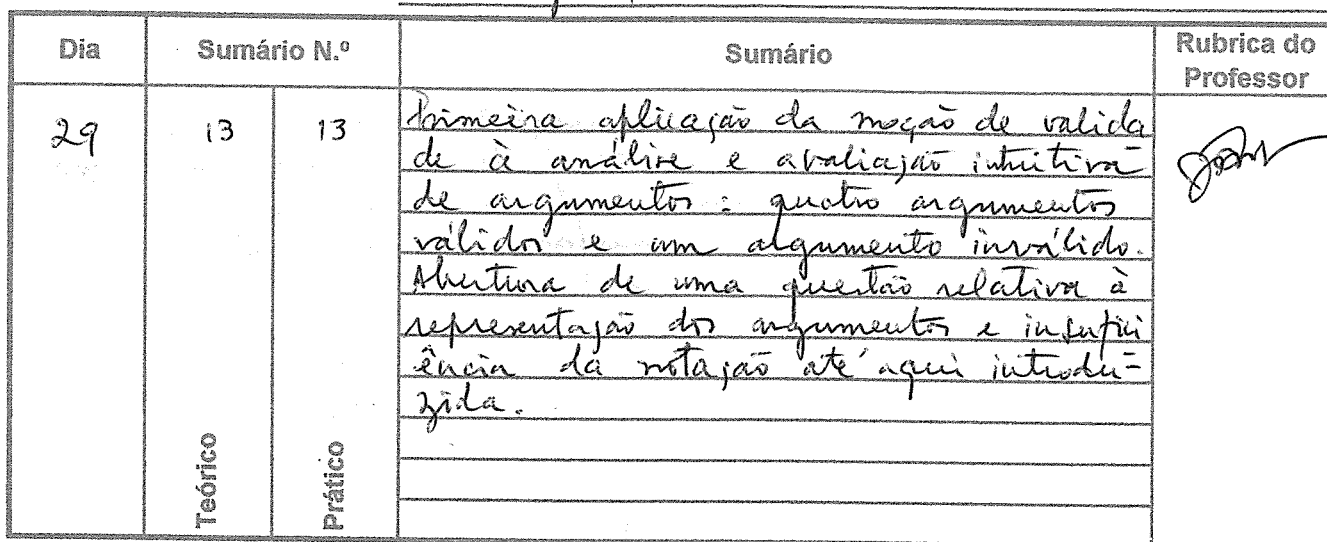 Dia
Sumário N.º
Sumário
Rubrica do
Professor
29
13
13
Primeira aplicação da noção de valida
de à análise e avaliação intuitiva
de argumentos: quatro argumentos
válidos e um argumento inválido.
Abertura de uma questão relativa à
representação dos argumentos e insufici
ência da notação até aqui introdu-
zida.
Teórico
Prático